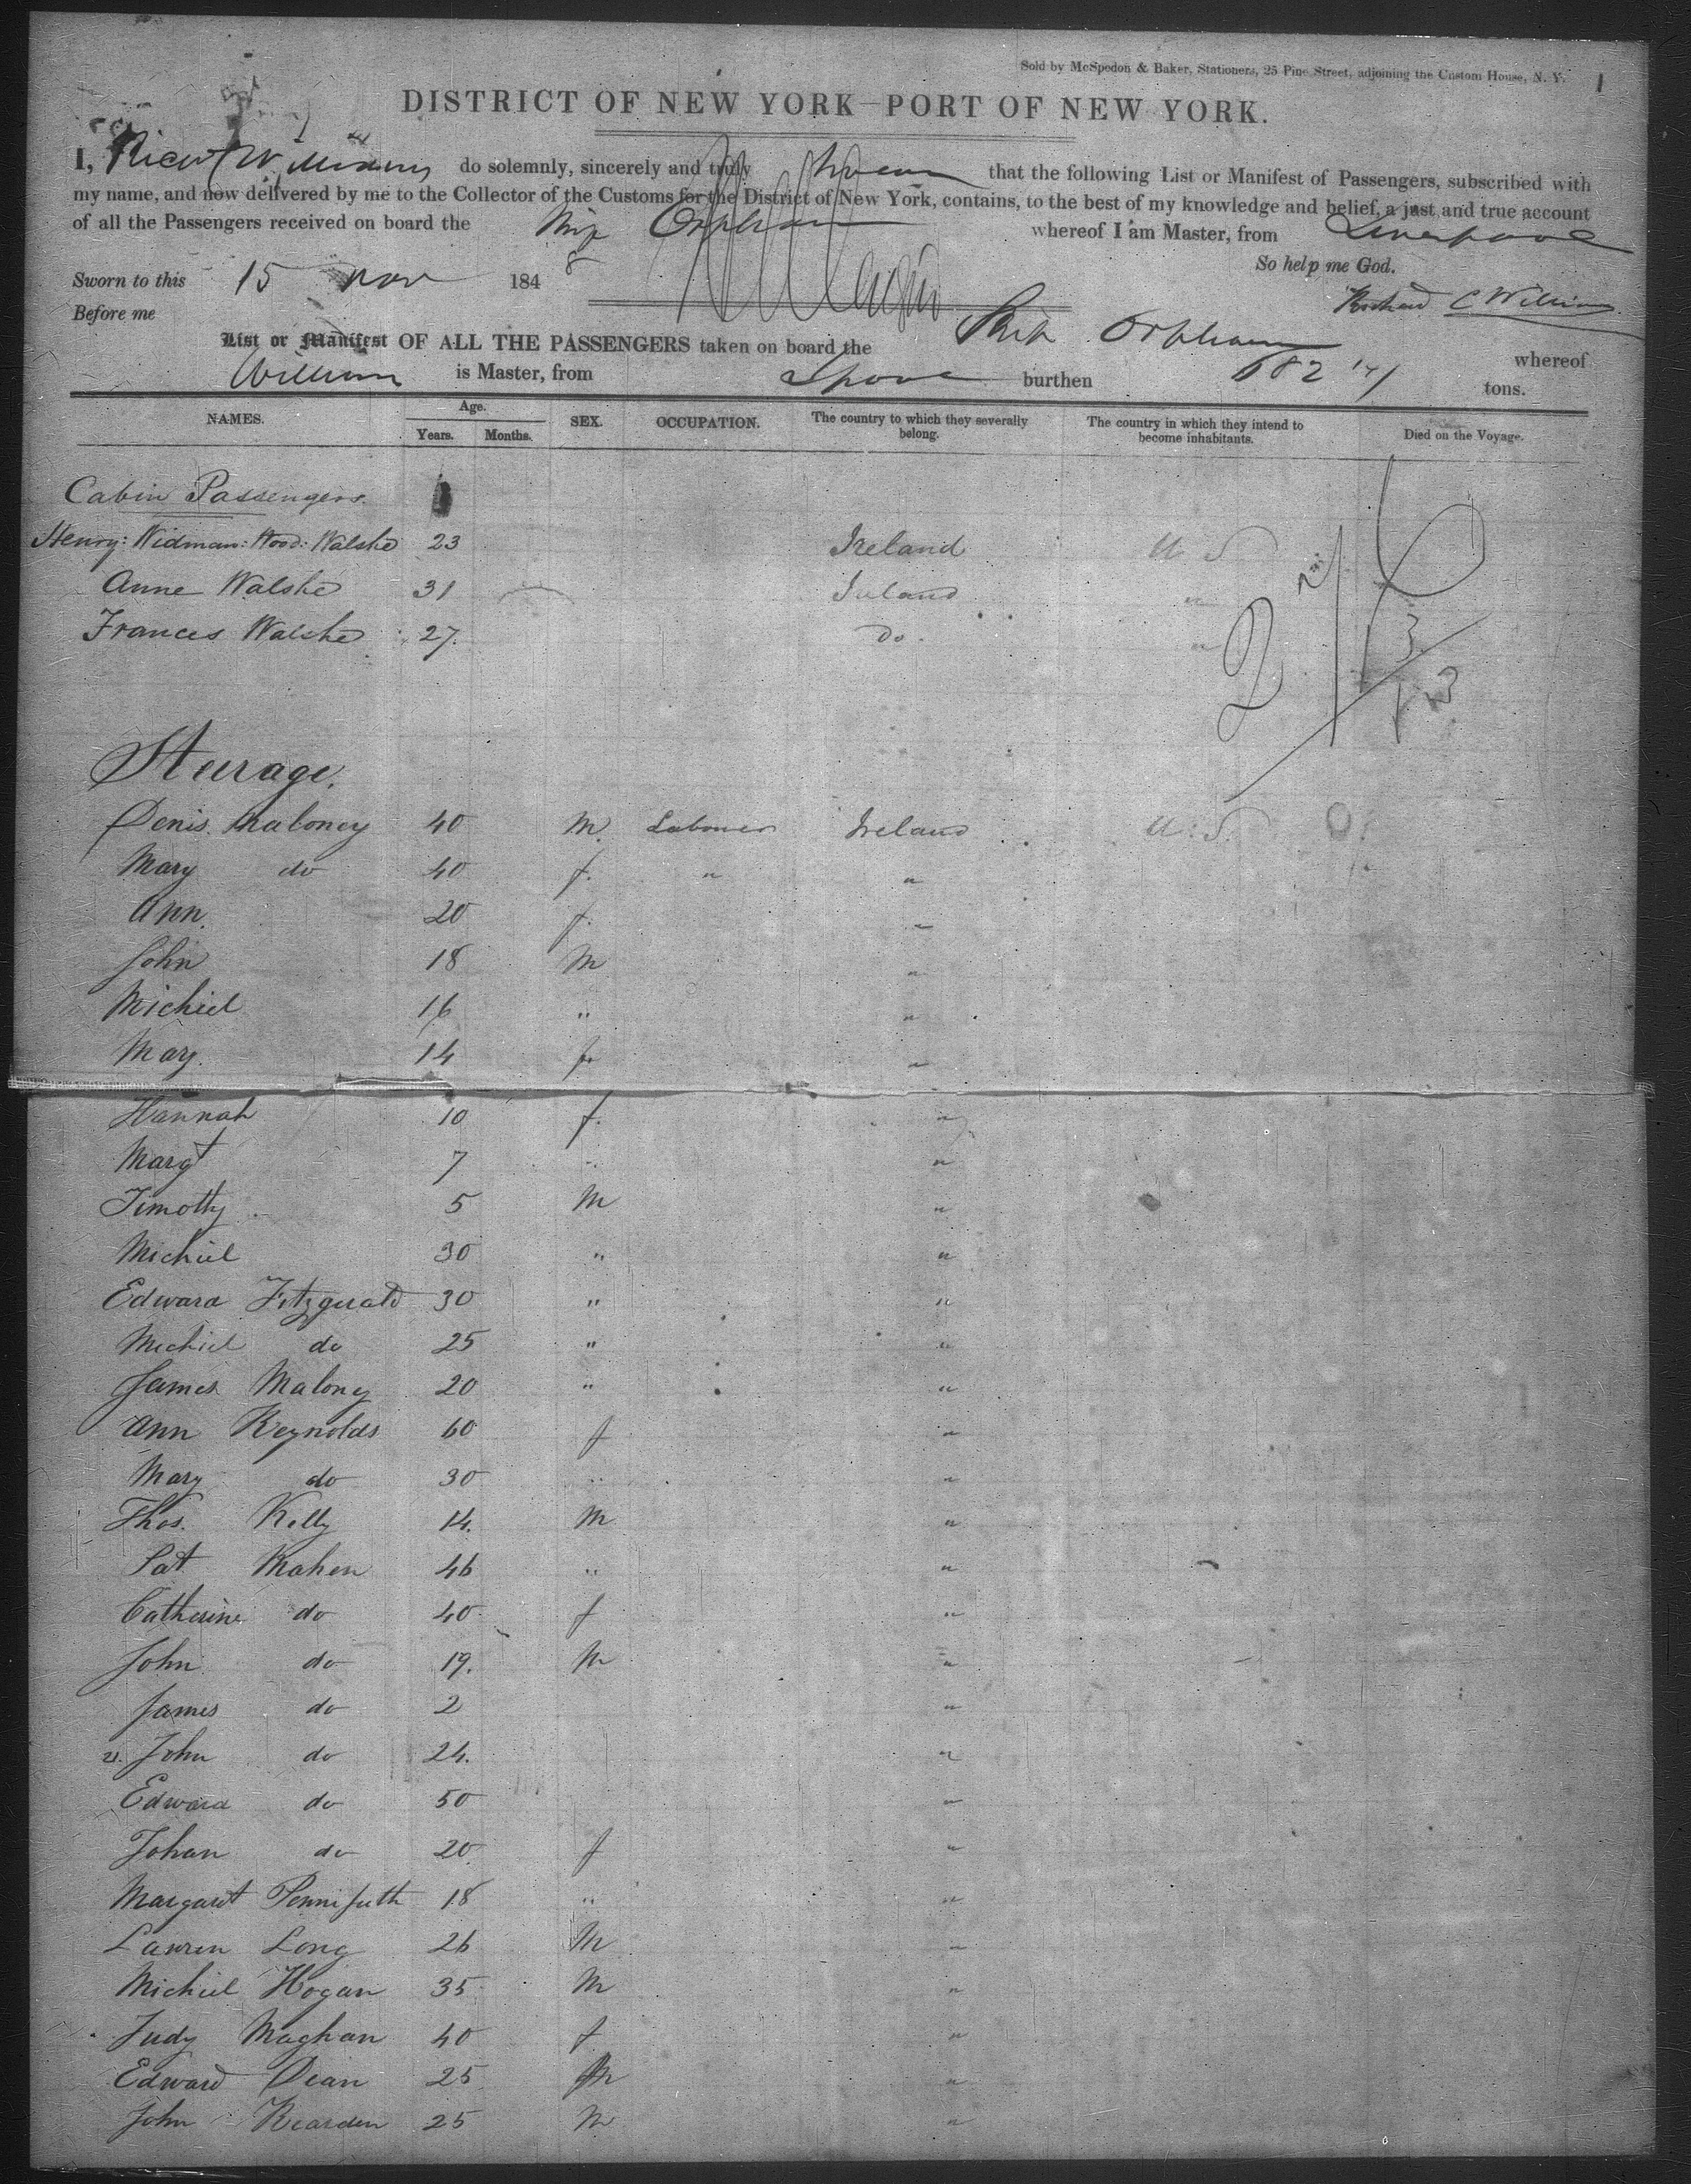 Sold by McSpedon & Baker, Stationers, 25 Pine Street, adjoining the Custom House, N. Y. 1
DISTRICT OF NEW YORK—PORT OF NEW YORK.
I, do solemnly, sincerely and truly swear that the following List or Manifest of Passengers, subscribed with
my name, and now delivered by me to the Collector of the Customs for the District of New York, contains, to the best of my knowledge and belief, a just and true account
of all the Passengers received on board the Ship Orphan whereof I am Master, from Liverpool
So help me God.
Sworn to this 15 Nov 1848
Richard C William
Before me
List or Manifest OF ALL THE PASSENGERS taken on board the Ship Orphan whereof
William is Master, from Lpool burthen 682 tons.
NAMES. Age. Years. Months. SEX. OCCUPATION. The country to which they severally belong. The country in which they intend to become inhabitants. Died on the Voyage.
Cabin Passengers.
Henry: Widman: Wood: Walshe 23 Ireland U S
Anne Walshe 31 Ireland "
Frances Walshe 27. Do. "
Steerage.
Denis Maloney 40 M. Labourer Ireland U. S.
Mary do 40 f. " "
Ann. 20 f. "
John 18 M "
Michiel 16 " "
Mary. 14 f. "
Hannah 10 f. "
Margt 7 " "
Timothy 5 M "
Michiel 30 " "
Edward Fitzgerald 30 " "
Michiel do 25 " "
James Malony 20 " "
Ann Reynolds 60 f "
Mary do 30 " "
Thos. Kelly 14. M "
Pat Mahen 46 " "
Catherine do 40 f "
John do 19. M "
James do 2 "
21. John do 24. "
Edward do 50 "
Johan do 20 f "
Margaret 18 " "
Lauren Long 26 M "
Michiel Hogan 35 M "
Judy Maghan 40 f "
Edward Dean 25 M "
John Rearden 25 M "